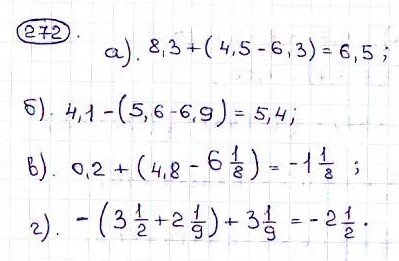 272.
а). 8,3 + (4,5 - 6,3) = 6,5 ;
б). 4,1 - (5,6 - 6,9) = 5,4 ;
в). 0,2 + (4,8 - 6 1/8) = -1 1/8 ;
г). - (3 1/2 + 2 1/9) + 3 1/9 = - 2 1/2 .